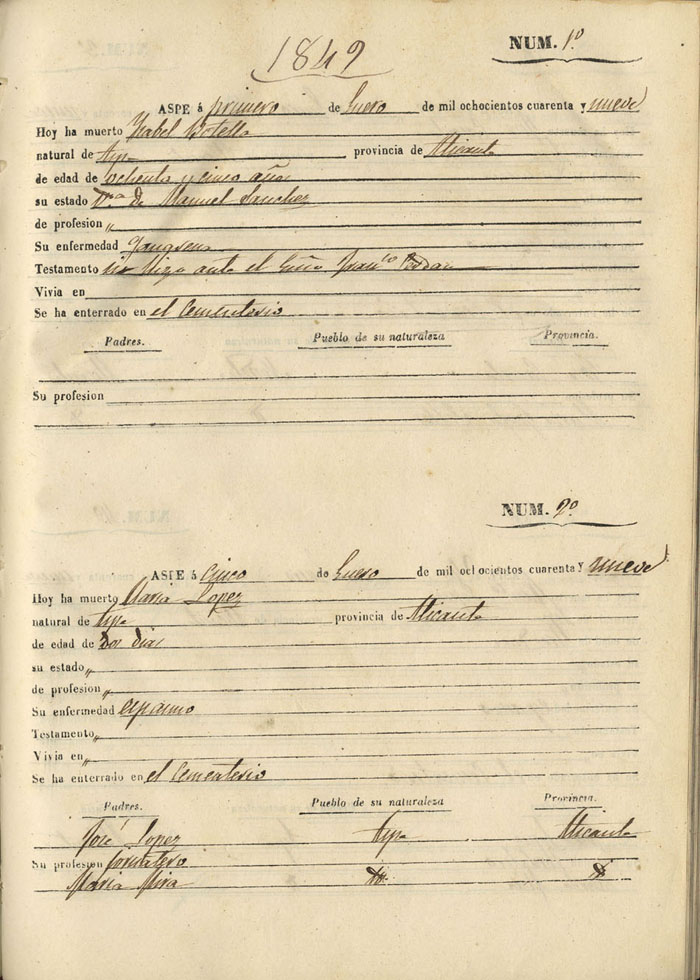 1849
NUM. 1º
ASPE á primero de Enero de mil ochocientos cuarenta y nueve
Hoy ha muerto Ysabel Botella
natural de Aspe provincia de Alicante
de edad de ochenta y cinco años
su estado Vª de Manuel Sanchez
de profesion „
Su enfermedad Gangrena
Testamento hizo ante el Franco
Vivia en
Se ha enterrado en el Cementerio
Padres. Pueblo de su naturaleza Provincia.
Su profesion
NUM. 2º
ASPE á cinco de Enero de mil ochocientos cuarenta y nueve
Hoy ha muerto Maria Lopez
natural de Aspe provincia de Alicante
de edad de dos dias
su estado „
de profesion „
Su enfermedad espasmo
Testamento „
Vivia en „
Se ha enterrado en el Cementerio
Padres. Pueblo de su naturaleza Provincia.
José Lopez Aspe Alicante
Su profesion Jornalero
Maria Mira